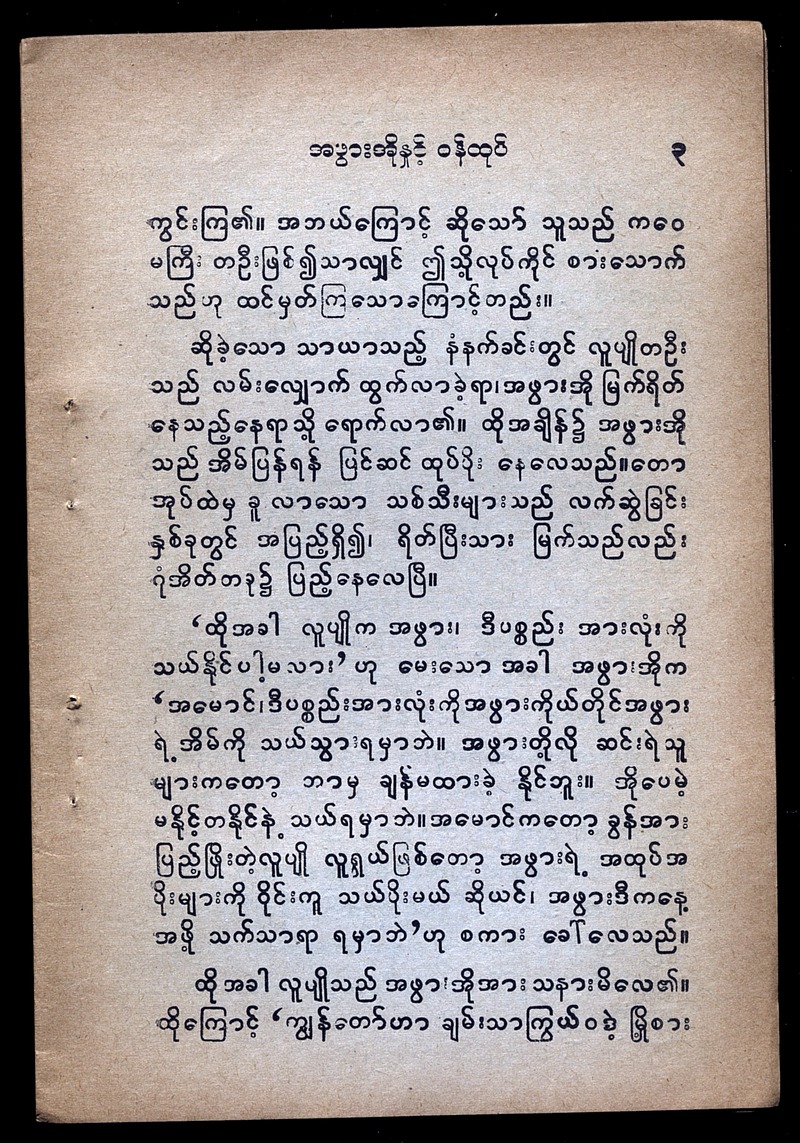 အဖွားအိုနှင့် ဝန်ထုပ် ၃
ကွင်းကြ၏။ အဘယ်ကြောင့် ဆိုသော် သူသည် ကဝေ
မကြီး တဦးဖြစ်၍သာလျှင် ဤသို့လုပ်ကိုင် စားသောက်
သည်ဟု ထင်မှတ်ကြသောကြောင့်တည်း။
ဆိုခဲ့သော သာယာသည့် နံနက်ခင်းတွင် လူပျိုတဦး
သည် လမ်းလျှောက် ထွက်လာခဲ့ရာ၊ အဖွားအို မြက်ရိတ်
နေသည့်နေရာသို့ ရောက်လာ၏။ ထိုအချိန်၌ အဖွားအို
သည် အိမ်ပြန်ရန် ပြင်ဆင် ထုပ်ပိုး နေလေသည်။တော
အုပ်ထဲမှ ခူ လာသော သစ်သီးများသည် လက်ဆွဲခြင်း
နှစ်ခုတွင် အပြည့်ရှိ၍၊ ရိတ်ပြီးသား မြက်သည်လည်း
ဂုံအိတ်တခု၌ ပြည့်နေလေပြီ။
‘ထိုအခါ လူပျိုက အဖွား၊ ဒီပစ္စည်း အားလုံးကို
သယ်နိုင်ပါ့မလား’ ဟု မေးသောအခါ အဖွားအိုက
‘အမောင်၊ဒီပစ္စည်းအားလုံးကိုအဖွားကိုယ်တိုင်အဖွား
ရဲ့အိမ်ကို သယ်သွားရမှာဘဲ။ အဖွားတို့လို ဆင်းရဲသူ
များကတော့ ဘာမှ ချန်မထားခဲ့ နိုင်ဘူး။ အိုပေမဲ့
မနိုင့်တနိုင်နဲ့ သယ်ရမှာဘဲ။အမောင်ကတော့ ခွန်အား
ပြည့်ဖြိုးတဲ့လူပျို လူရွယ်ဖြစ်တော့ အဖွားရဲ့ အထုပ်အ
ပိုးများကို ဝိုင်းကူ သယ်ပိုးမယ် ဆိုယင်၊ အဖွားဒီကနေ့
အဖို့ သက်သာရာ ရမှာဘဲ’ဟု စကား ခေါ်လေသည်။
ထိုအခါ လူပျိုသည် အဖွားအိုအား သနားမိလေ၏။
ထိုကြောင့် ‘ကျွန်တော်ဟာ ချမ်းသာကြွယ်ဝဒဲ့ မြို့စား